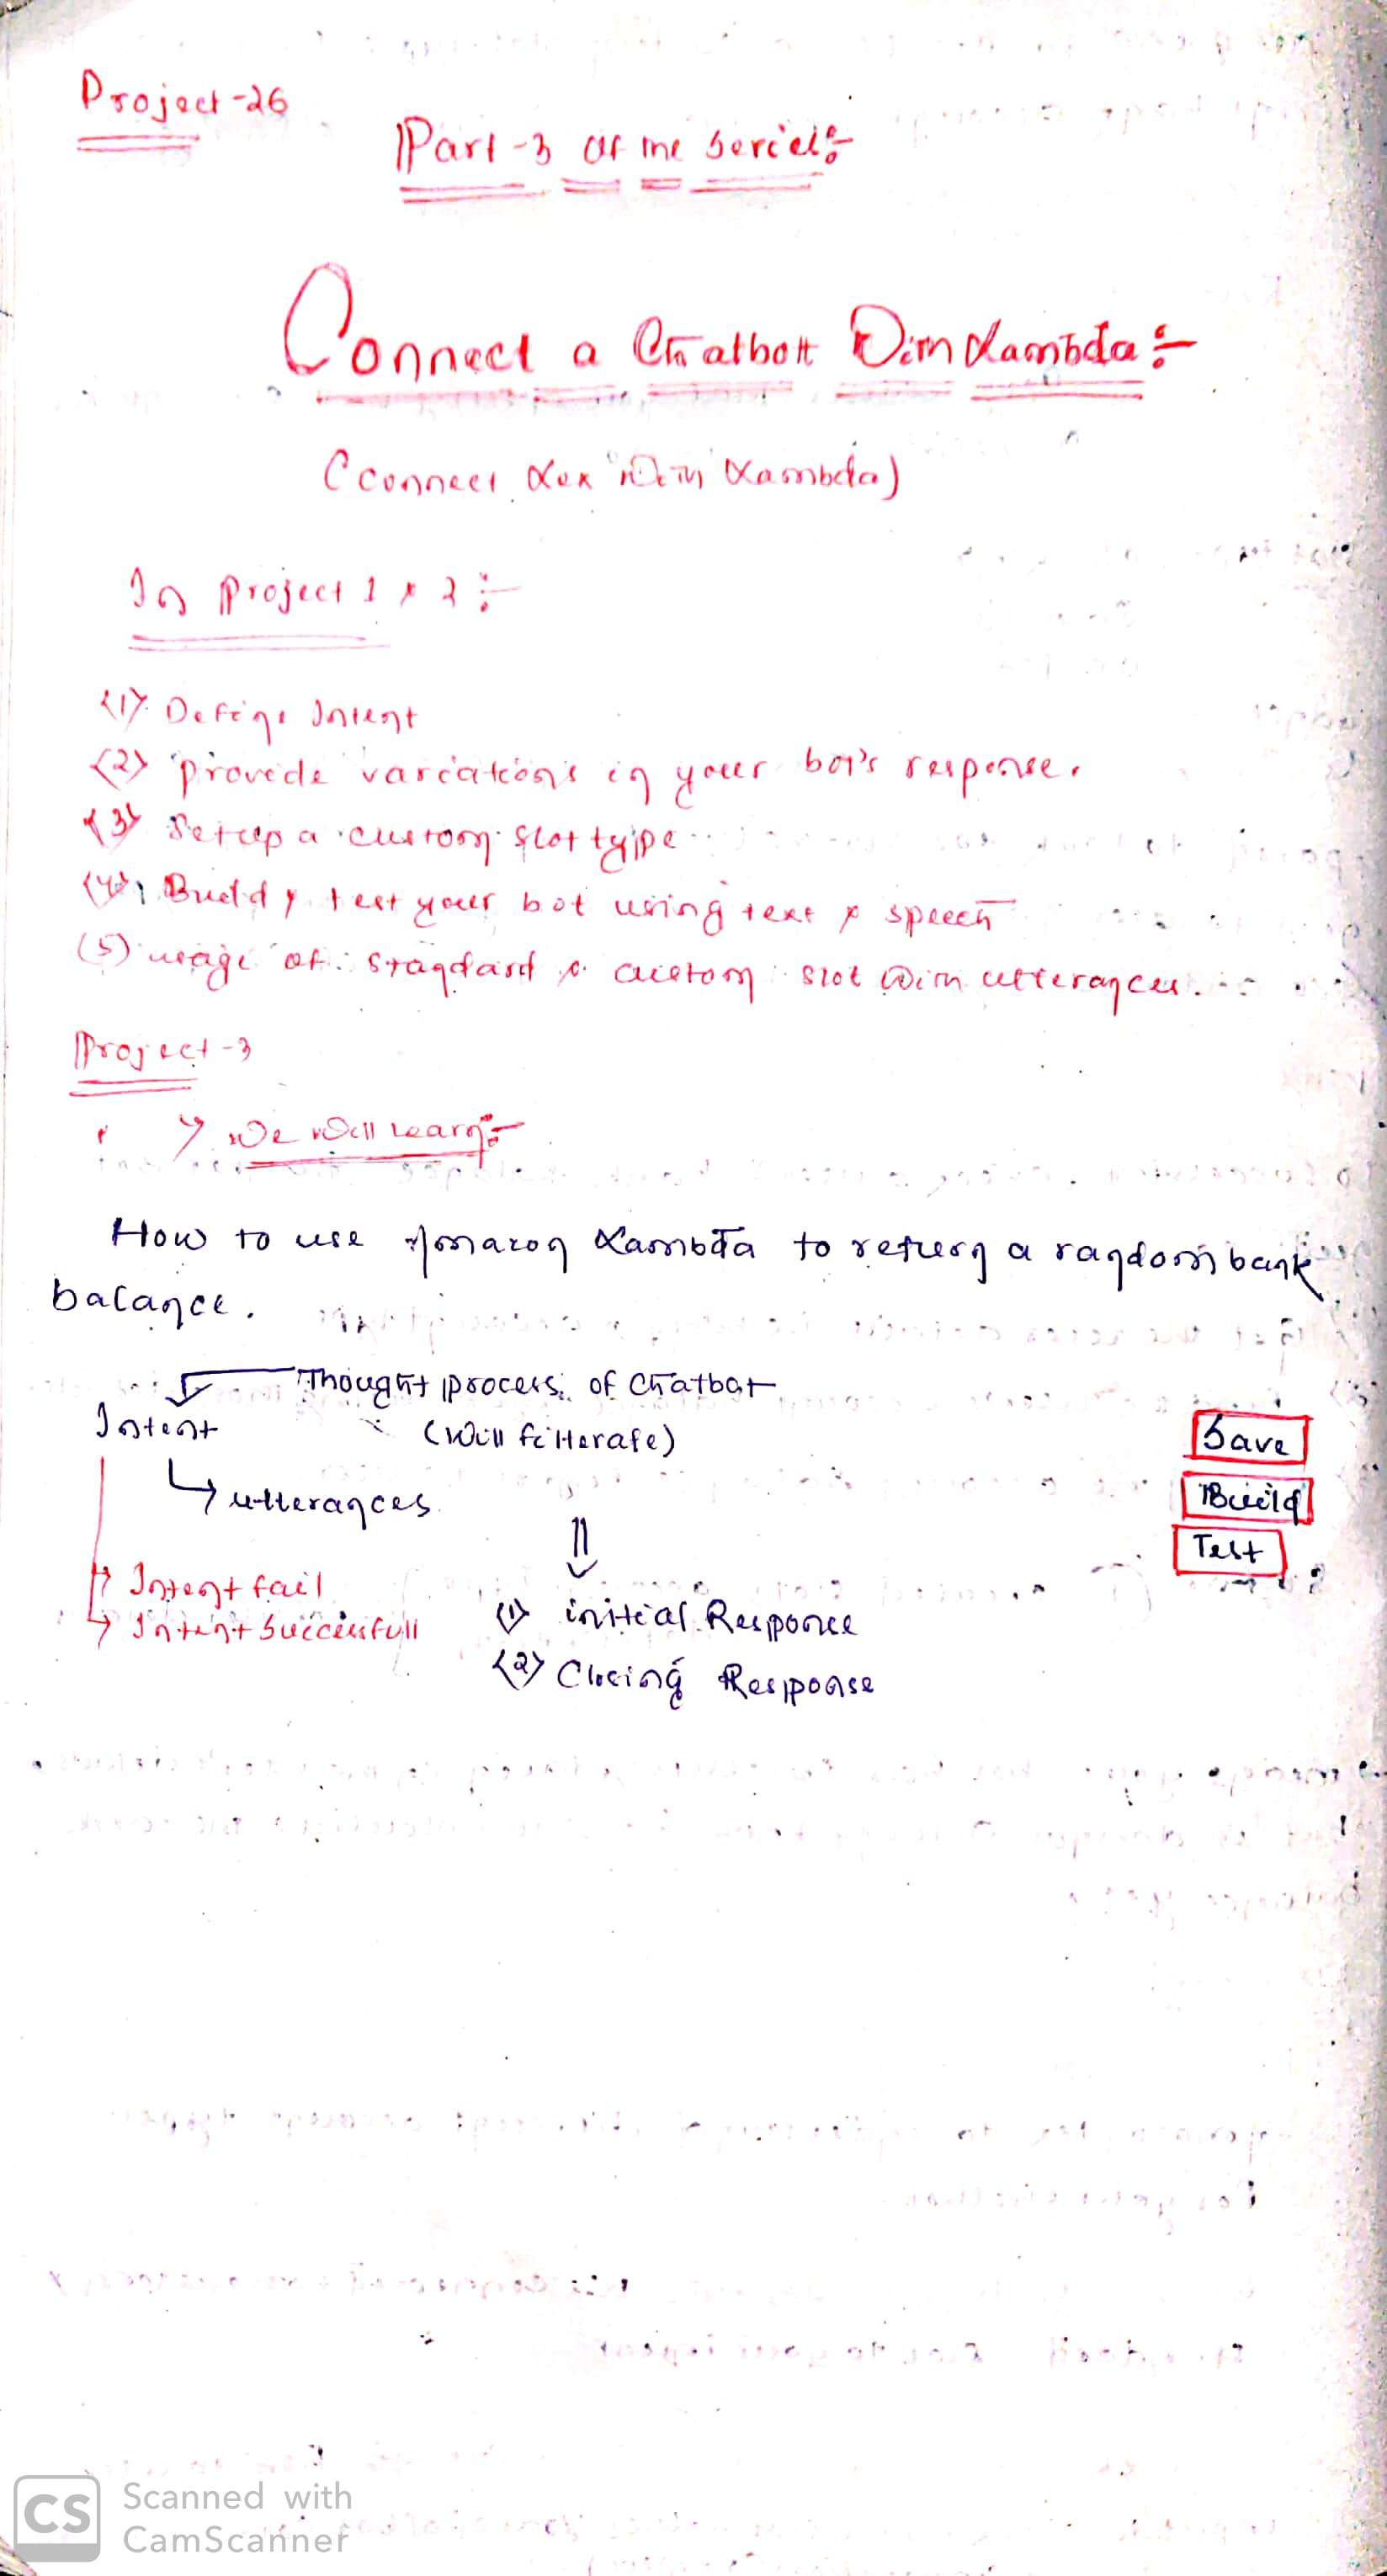 Project-26
Part-3 of the Series:-
Connect a Chatbott With Lambda:-
(connect Lex with Lambda)
In Project 1 & 2:-
(1) Define Intent
(2) provide variations in your bot's response.
(3) Setup a custom slot type
(4) Build & test your bot using text & speech
(5) usage of standard & custom slot with utterances.
Project-3
> We will learn:-
How to use Amazon Lambda to return a random bank
balance.
Thought process of Chatbot
Intent
(Will
Save
↳ utterances
Build
Test
⇓
↳ Intent fail
(1) initial Responce
↳ Intent Successfull
(2) Closing Response
CS Scanned with
CamScanner